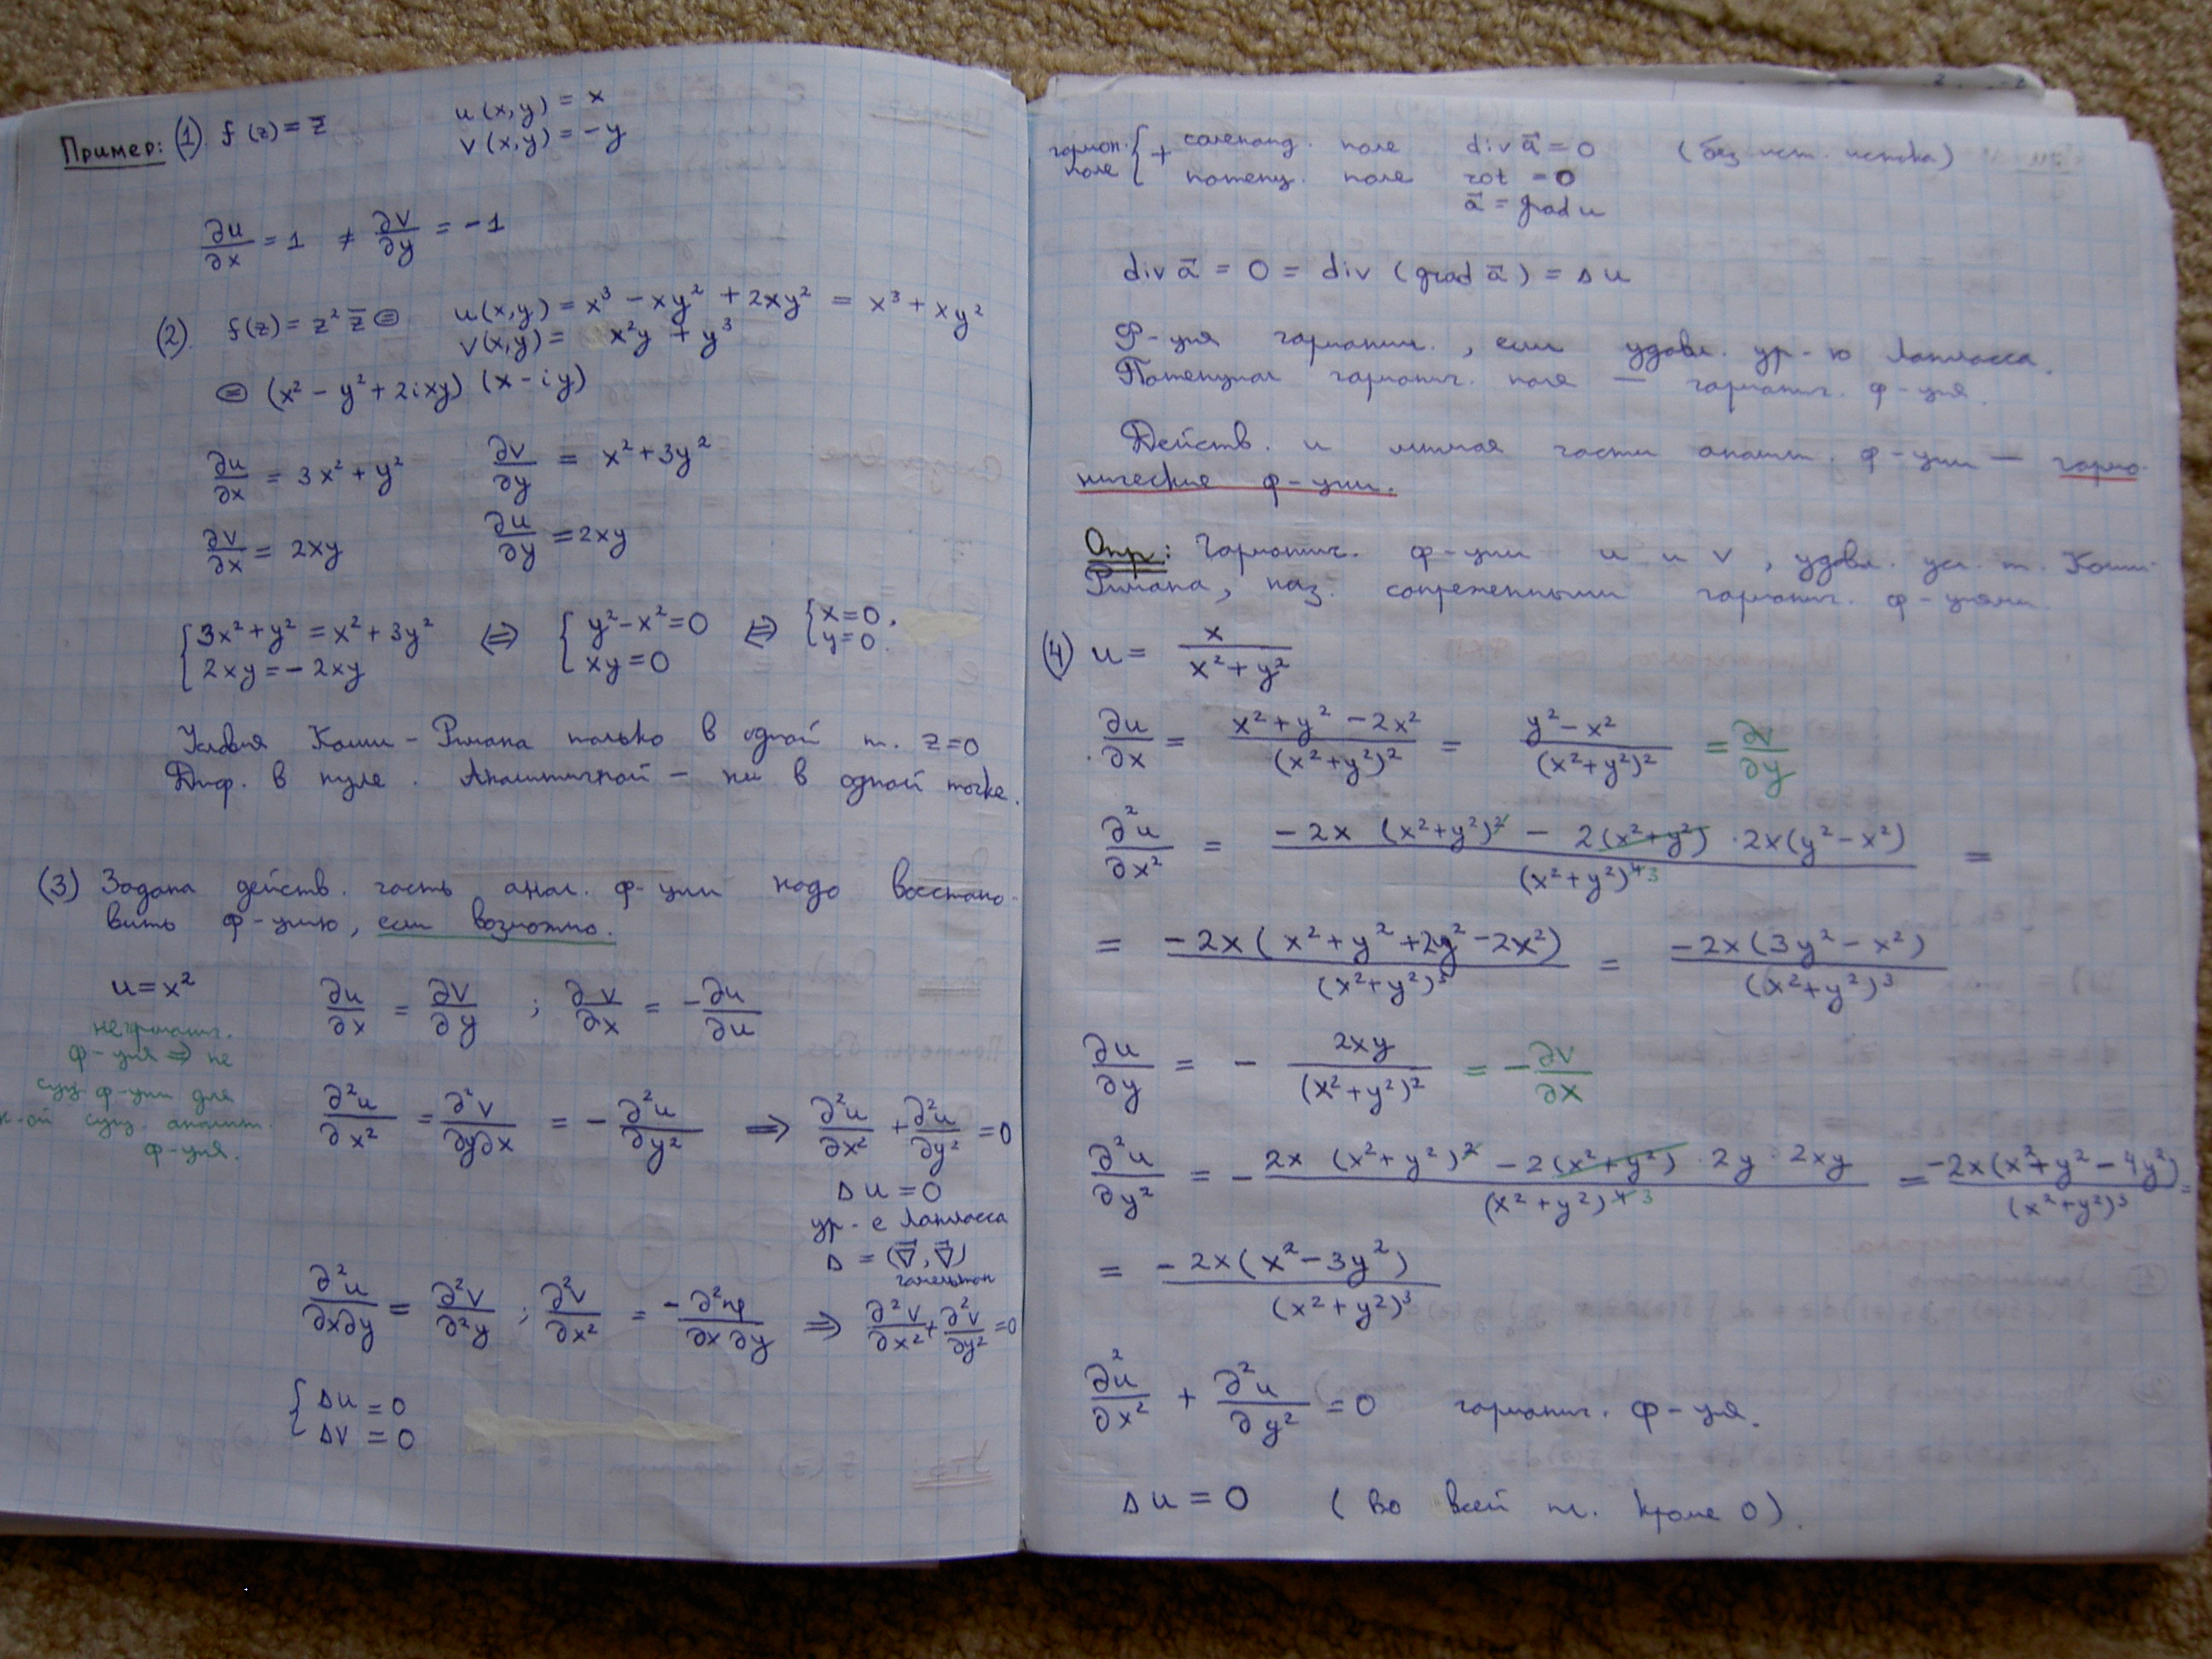 Пример: (1). f(z) = z̅
u(x,y) = x
v(x,y) = -y
∂u/∂x = 1 ≠ ∂v/∂y = -1
(2). f(z) = z² z̅ ⊜
u(x,y) = x³ - xy² + 2xy² = x³ + xy²
v(x,y) = x²y + y³
⊜ (x² - y² + 2ixy) (x - iy)
∂u/∂x = 3x² + y²   ∂v/∂y = x² + 3y²
∂v/∂x = 2xy   ∂u/∂y = 2xy
{ 3x² + y² = x² + 3y²   ⇔ { y² - x² = 0   ⇔ { x = 0,
2xy = - 2xy   xy = 0   y = 0.
Условия Коши - Римана только в одной т. z = 0
Диф. в нуле. Аналитичной - ни в одной точке.
(3) Задана действ. часть анал. ф-ции надо восстано-
вить ф-цию, если возможно.
u = x²   ∂u/∂x = ∂v/∂y ; ∂v/∂x = - ∂u/∂u
негармонич.
ф-ция ⇒ не
сущ ф-ции для
к-ой сущ. аналит.
ф-ция.
∂²u/∂x² = ∂²v/∂y∂x = - ∂²u/∂y² ⇒ ∂²u/∂x² + ∂²u/∂y² = 0
Δu = 0
ур-е Лапласса
Δ = (∇⃗, ∇⃗)
гамельтон
∂²u/∂x∂y = ∂²v/∂²y ; ∂²v/∂x² = - ∂²/∂x∂y ⇒ ∂²v/∂x² + ∂²v/∂y² = 0
{ Δu = 0
Δv = 0
гармон. поле { + соленоид. поле   div a⃗ = 0   (без ист. истока)
потенц. поле   rot = 0
a⃗ = grad u
div a⃗ = 0 = div (grad a⃗) = Δu
Ф-ция гармонич., если удовл. ур-ю Лапласса.
Потенциал гармонич. поля — гармонич. ф-ция.
Действ. и мнимая части аналит. ф-ции — гармо-
нические ф-ции.
Опр: Гармонич. ф-ции u и v, удовл. усл. т. Коши-
Римана, наз. сопреженными гармонич. ф-циями
(4) u = x/(x² + y²)
∂u/∂x = (x² + y² - 2x²)/(x² + y²)² = (y² - x²)/(x² + y²)² = ∂v/∂y
∂²u/∂x² = (-2x (x² + y²)² - 2(x² + y²) · 2x(y² - x²))/(x² + y²)⁴ ³ =
= -2x(x² + y² + 2y² - 2x²)/(x² + y²)³ = -2x(3y² - x²)/(x² + y²)³
∂u/∂y = - 2xy/(x² + y²)² = - ∂v/∂x
∂²u/∂y² = - (2x (x² + y²)² - 2(x² + y²) · 2y · 2xy)/(x² + y²)⁴ ³ = -2x(x² + y² - 4y²)/(x² + y²)³ =
= -2x(x² - 3y²)/(x² + y²)³
∂²u/∂x² + ∂²u/∂y² = 0   гармонич. ф-ция.
Δu = 0   (во всей пл. кроме 0).